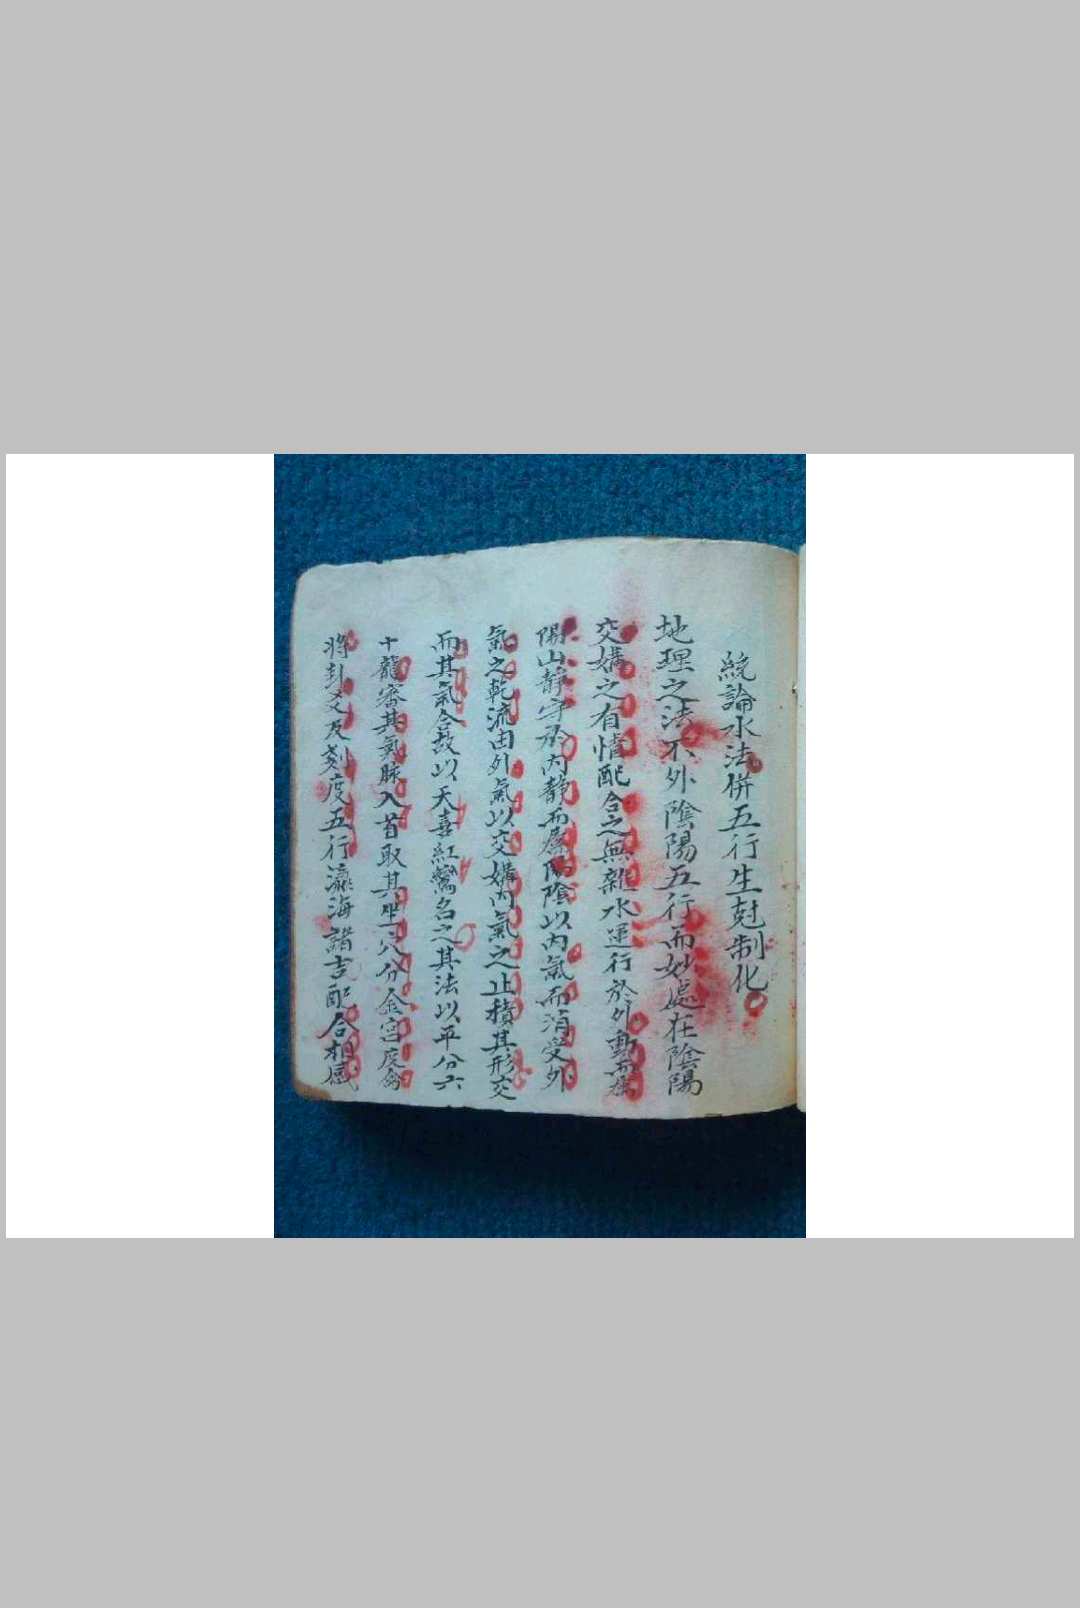 統論水法併五行生尅制化
地理之法不外陰陽五行而妙處在陰陽
交媾之有情配合之無雜水運行於外動而屬
陽山靜守於內靜而屬陽陰以內氣而消受外
氣之乾流由外氣以交媾內氣之止積其形交
而其氣合故以天喜紅鸞名之其法以平分六
十龍審其氣脉入首取其坐穴分金宮度
將卦爻及刻度五行瀛海諸吉配合相感